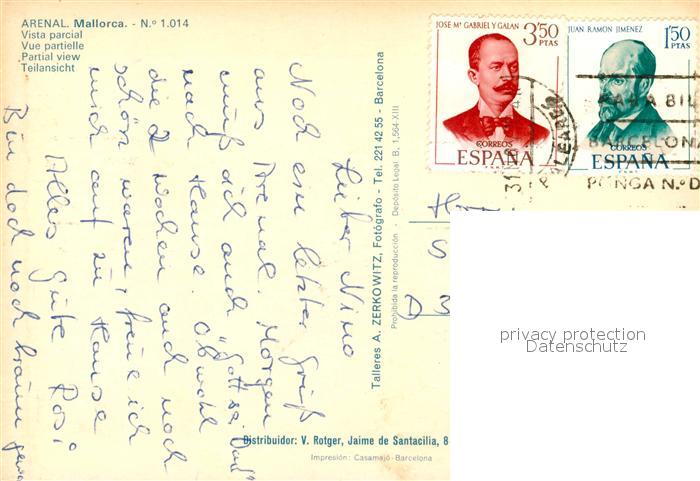 ARENAL. Mallorca. - N.º 1.014
Vista parcial
Vue partielle
Partial view
Teilansicht
JOSE Mª GABRIEL Y GALAN 3'50 PTAS
CORREOS
ESPAÑA
JUAN RAMON JIMENEZ 1'50 PTAS
CORREOS
ESPAÑA
BARCELONA
PONGA N.º D
Lieber Nino
Noch ein letzter Gruß
aus Arenal. Morgen
muß ich auch "Gott sei Dank"
nach Hause. Obwohl
die 2 Wochen auch noch
schön waren, freue ich
mich auf zu Hause
Alles Gute Rosi
Bin doch noch braun
Talleres A. ZERKOWITZ, Fotógrafo - Tel. 221 42 55 - Barcelona
Prohibida la reproducción - Depósito Legal B. 1.564-XIII
H
S
D 3
Distribuidor: V. Rotger, Jaime de Santacilia, 8
Impresión: Casamajó-Barcelona
privacy protection
Datenschutz